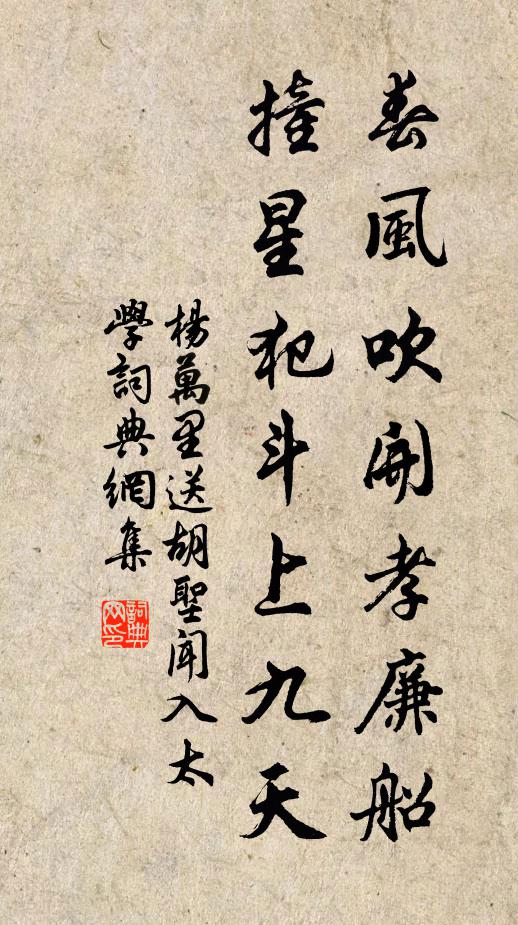 春風吹開孝廉船
撞星犯斗上九天
楊萬里送胡聖聞入太
學詞典網集
詞典
网印